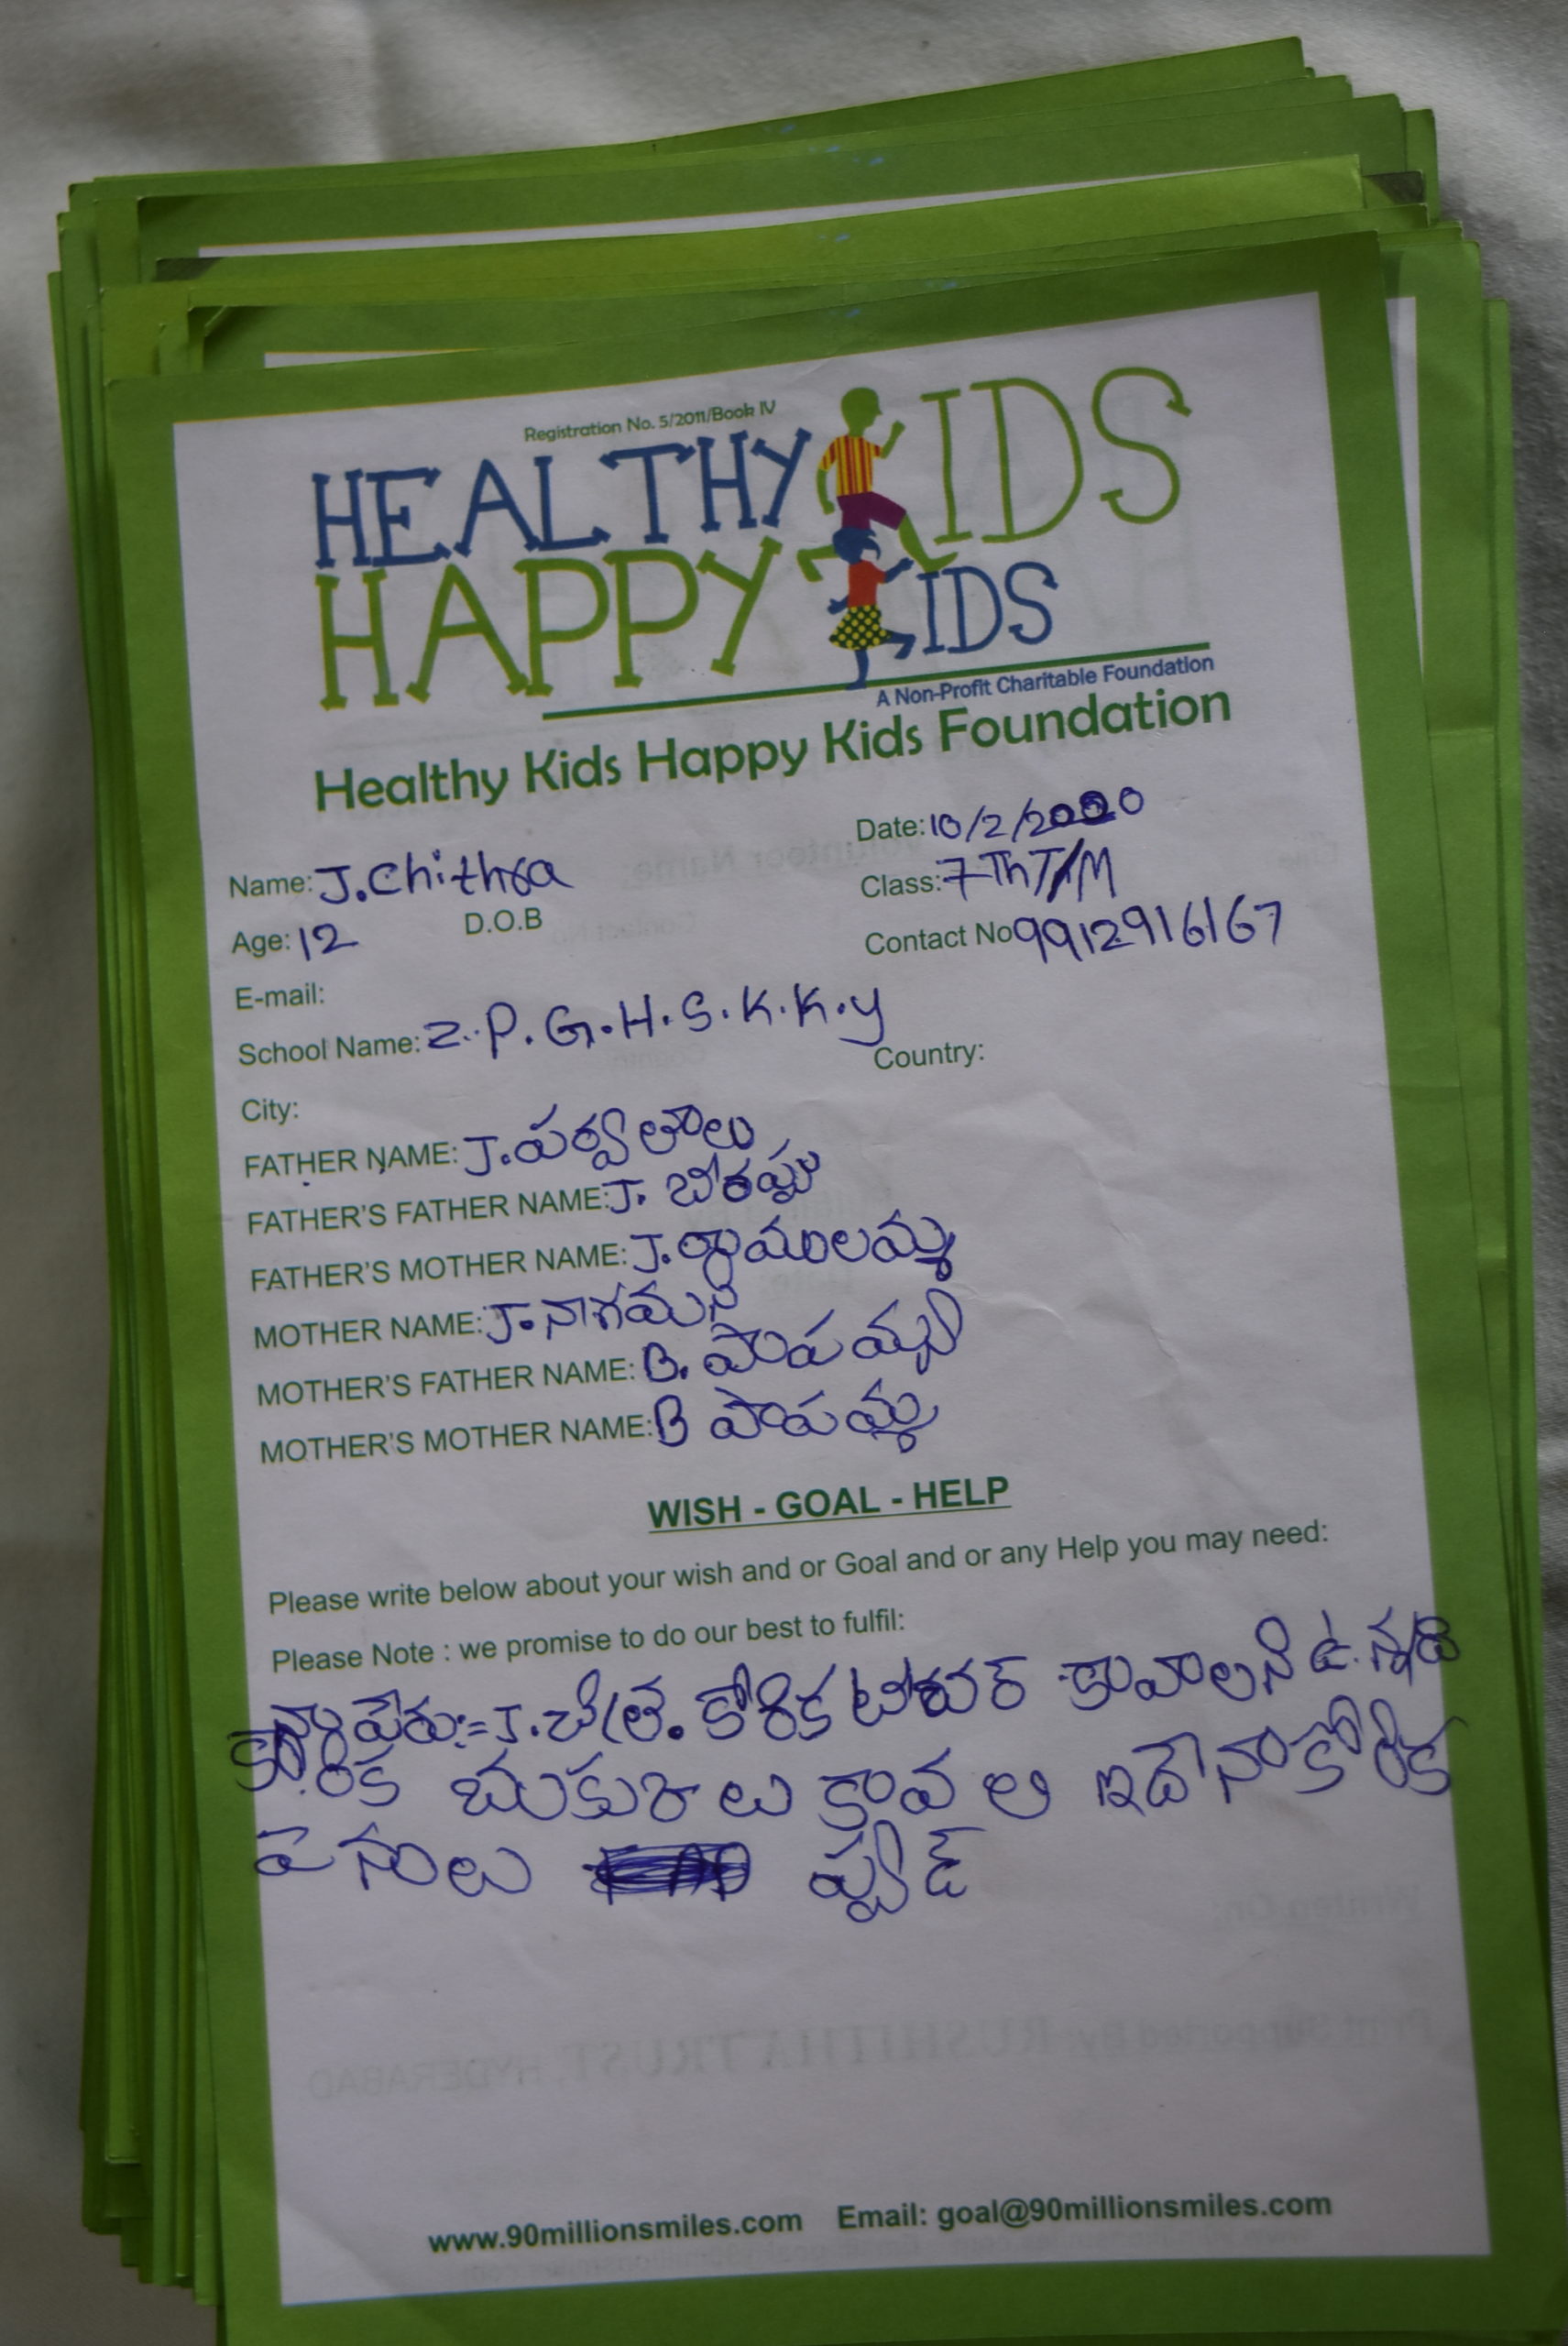 Registration No. 5/2011/Book IV
HEALTHY KIDS
HAPPY KIDS
A Non-Profit Charitable Foundation
Healthy Kids Happy Kids Foundation
Date: 10/2/2020
Name: J.Chithra
Class: 7Th T/M
Age: 12 D.O.B
Contact No 9912916167
E-mail:
School Name: Z.P.G.H.S.K.K.y
Country:
City:
FATHER NAME: J.పర్వతాలు
FATHER'S FATHER NAME: J. బీరప్ప
FATHER'S MOTHER NAME: J.రాములమ్మ
MOTHER NAME: J.నాగమని
MOTHER'S FATHER NAME: B.
MOTHER'S MOTHER NAME: B పాపమ్మ
WISH - GOAL - HELP
Please write below about your wish and or Goal and or any Help you may need:
Please Note : we promise to do our best to fulfil:
నా పేరు:= J.చిత్ర. కోరిక టీచర్ కావాలని ఉన్నది
కోరిక బుకురాలు కావలి ఇదే నా కోరిక
పెనులు ప్యాడ్
www.90millionsmiles.com Email: goal@90millionsmiles.com